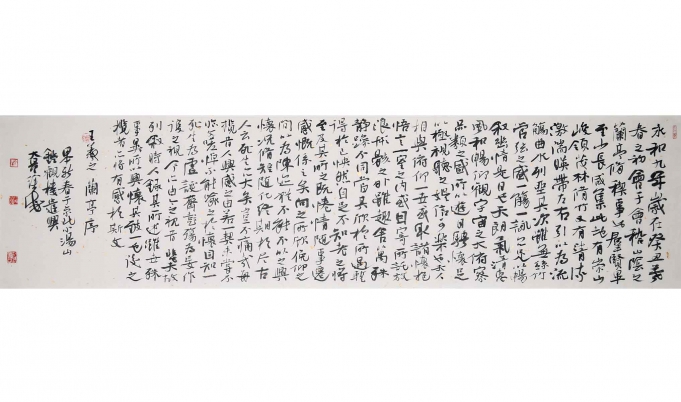 永和九年歲在癸丑暮
春之初會于會稽山陰之
蘭亭脩禊事也羣賢畢
至少長咸集此地有崇山
峻領茂林脩竹又有清流
激湍暎帶左右引以為流
觴曲水列坐其次雖無絲竹
管弦之盛一觴一詠亦足以暢
叙幽情是日也天朗氣清惠
風和暢仰觀宇宙之大俯察
品類之盛所以遊目騁懷足
以極視聽之娛信可樂也夫人之
相與俯仰一世或取諸懷抱
悟言一室之內或因寄所託放
浪形骸之外雖趣舍萬殊
靜躁不同當其欣於所遇暫
得於己快然自足不知老之將
至及其所之既惓情隨事遷
感慨係之矣向之所欣俛仰之
間以為陳迹猶不能不以之興
懷況脩短隨化終期於盡古
人云死生亦大矣豈不痛哉每
攬昔人興感之由若合一契未嘗不
臨文嗟悼不能喻之於懷固知一
死生為虛誕齊彭殤為妄作
後之視今亦由今之視昔悲夫故
列敘時人錄其所述雖世殊
事異所以興懷其致一也後之
攬者亦將有感於斯文
王羲之蘭亭序
春于京北小湯山